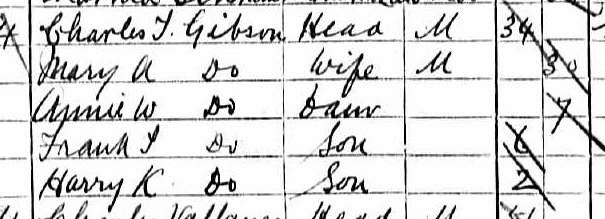 Charles T. Gibson Head M 34
Mary A Do Wife M 30
Annie W Do Daur 7
Frank T Do Son 6
Harry K Do Son 2
Charles Head M